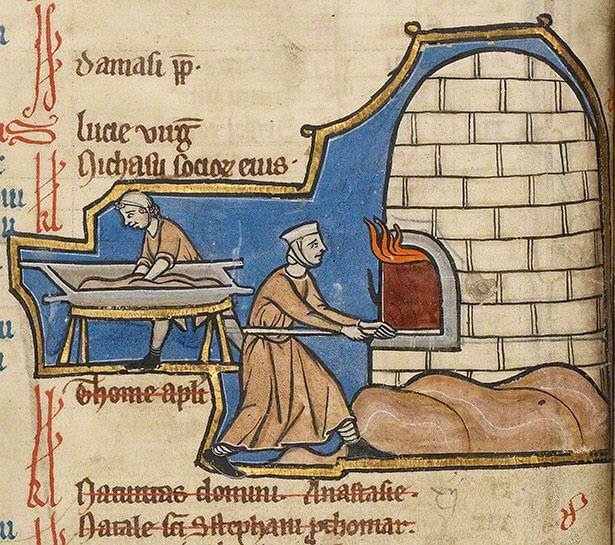 damasi pp̄.
lucie virg̅
Nichasii socior eius.
Thome apli
Natiuitas domini. Anastasie.
Natale sc̄i Sstephani prthomar.